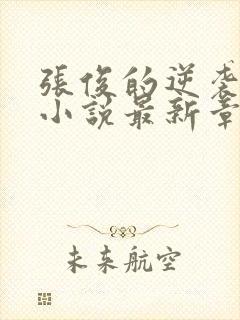 張俊的逆袭
小説最新章
未来航空